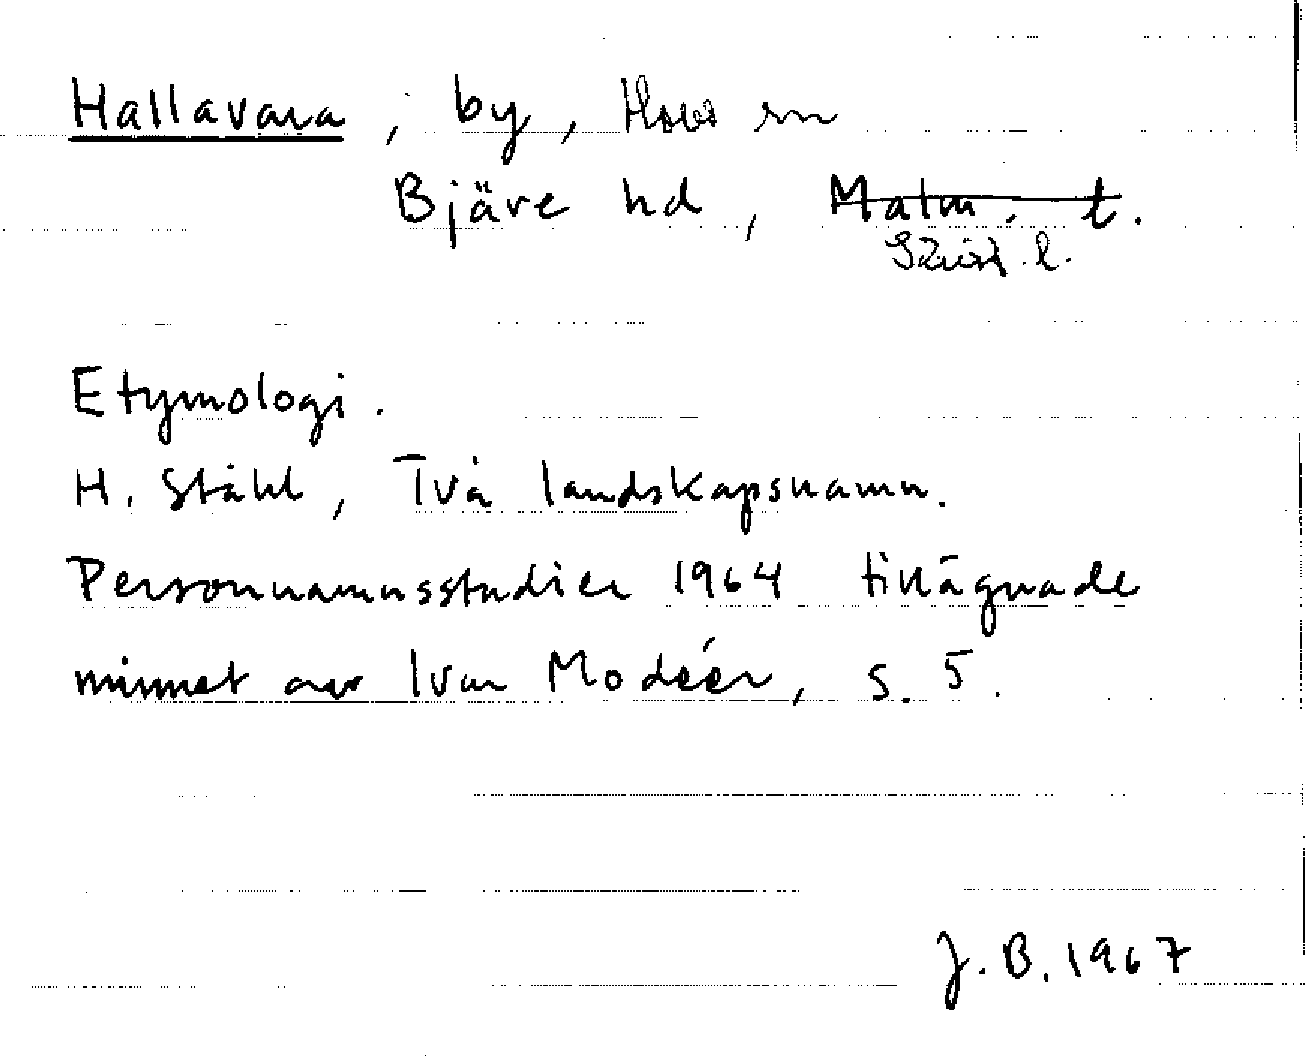 Hallavara, by, Hovs sn
Bjäre hd, Malm. l.
Skåne l.
Etymologi.
H. Ståhl, Två landskapsnamn.
Personnamnsstudier 1964 tillägnade
minnet av Ivar Modéer, s. 5.
J.B. 1967